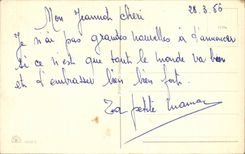 28.3.56
Mon Jeannot chéri
Je n'ai pas grandes nouvelles à t'annoncer
si ce n'est que tout le monde va bien
et t'embrasser bien bien fort.
Ta petite maman